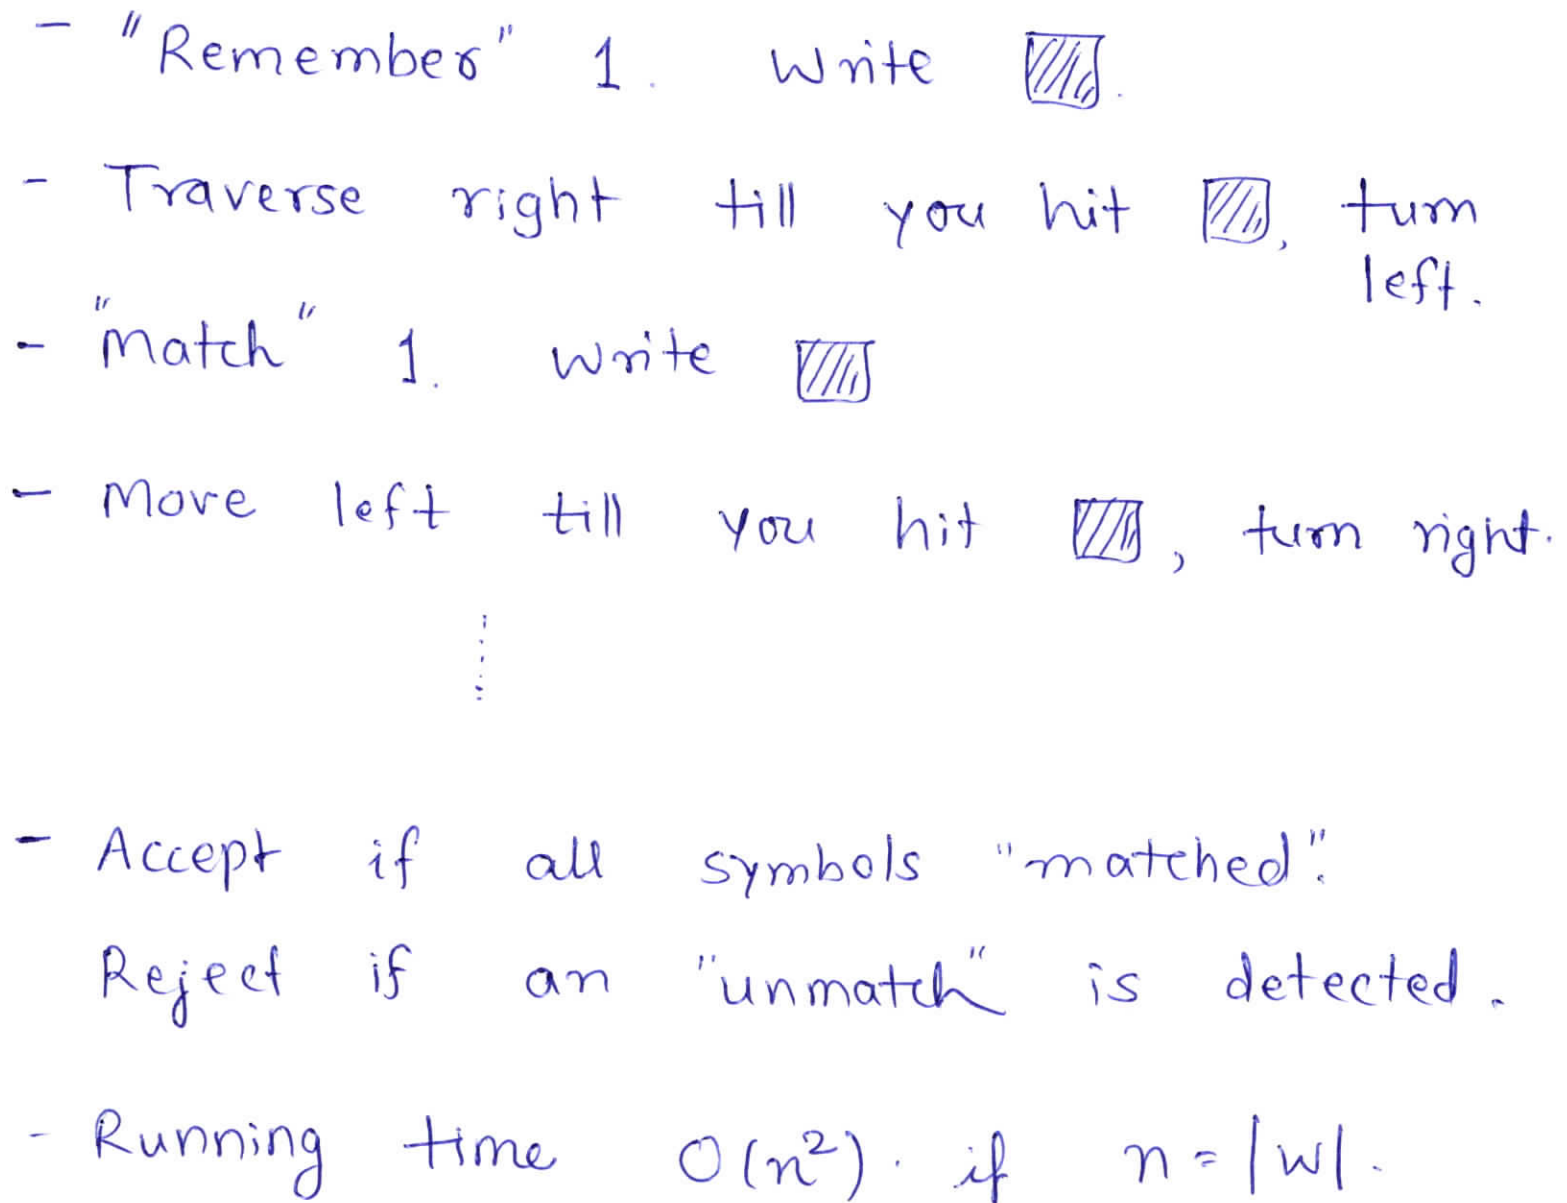 - "Remember" 1. Write ▨.
- Traverse right till you hit ▨, turn
left.
- "Match" 1. Write ▨
- Move left till you hit ▨, turn right.
- Accept if all symbols "matched".
Reject if an "unmatch" is detected.
- Running time O(n²). if n = |w|.